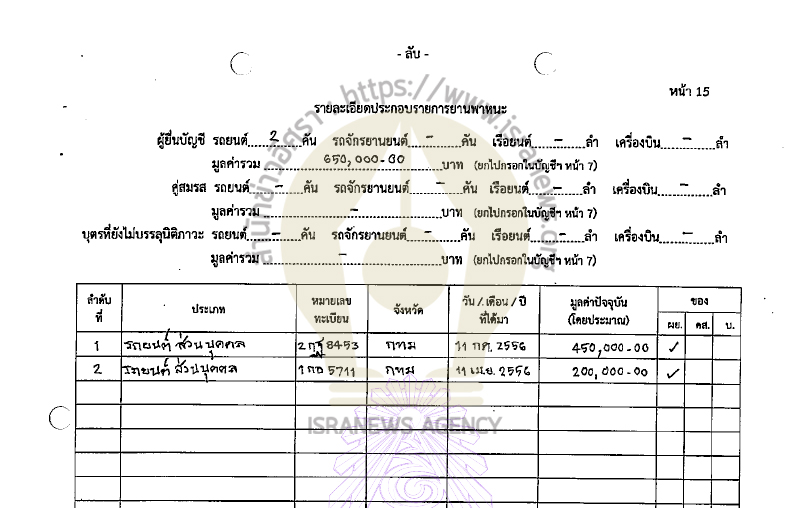 - ลับ -
หน้า 15
รายละเอียดประกอบรายการยานพาหนะ
ผู้ยื่นบัญชี รถยนต์ 2 คัน รถจักรยานยนต์ - คัน เรือยนต์ - ลำ เครื่องบิน - ลำ
มูลค่ารวม 650,000-00 บาท (ยกไปกรอกในบัญชีฯ หน้า 7)
คู่สมรส รถยนต์ - คัน รถจักรยานยนต์ - คัน เรือยนต์ - ลำ เครื่องบิน - ลำ
มูลค่ารวม - บาท (ยกไปกรอกในบัญชีฯ หน้า 7)
บุตรที่ยังไม่บรรลุนิติภาวะ รถยนต์ - คัน รถจักรยานยนต์ - คัน เรือยนต์ - ลำ เครื่องบิน - ลำ
มูลค่ารวม - บาท (ยกไปกรอกในบัญชีฯ หน้า 7)
ลำดับที่ ประเภท หมายเลขทะเบียน จังหวัด วัน / เดือน / ปี ที่ได้มา มูลค่าปัจจุบัน (โดยประมาณ) ของ
ผย. คส. บ.
1 รถยนต์ส่วนบุคคล 8453 กทม 11 กค. 2556 450,000-00 ✓
2 รถยนต์ส่วนบุคคล 5711 กทม 11 เม.ย. 2556 200,000-00 ✓
สำนักข่าวอิศรา https://www.isranews.org
ISRANEWS AGENCY